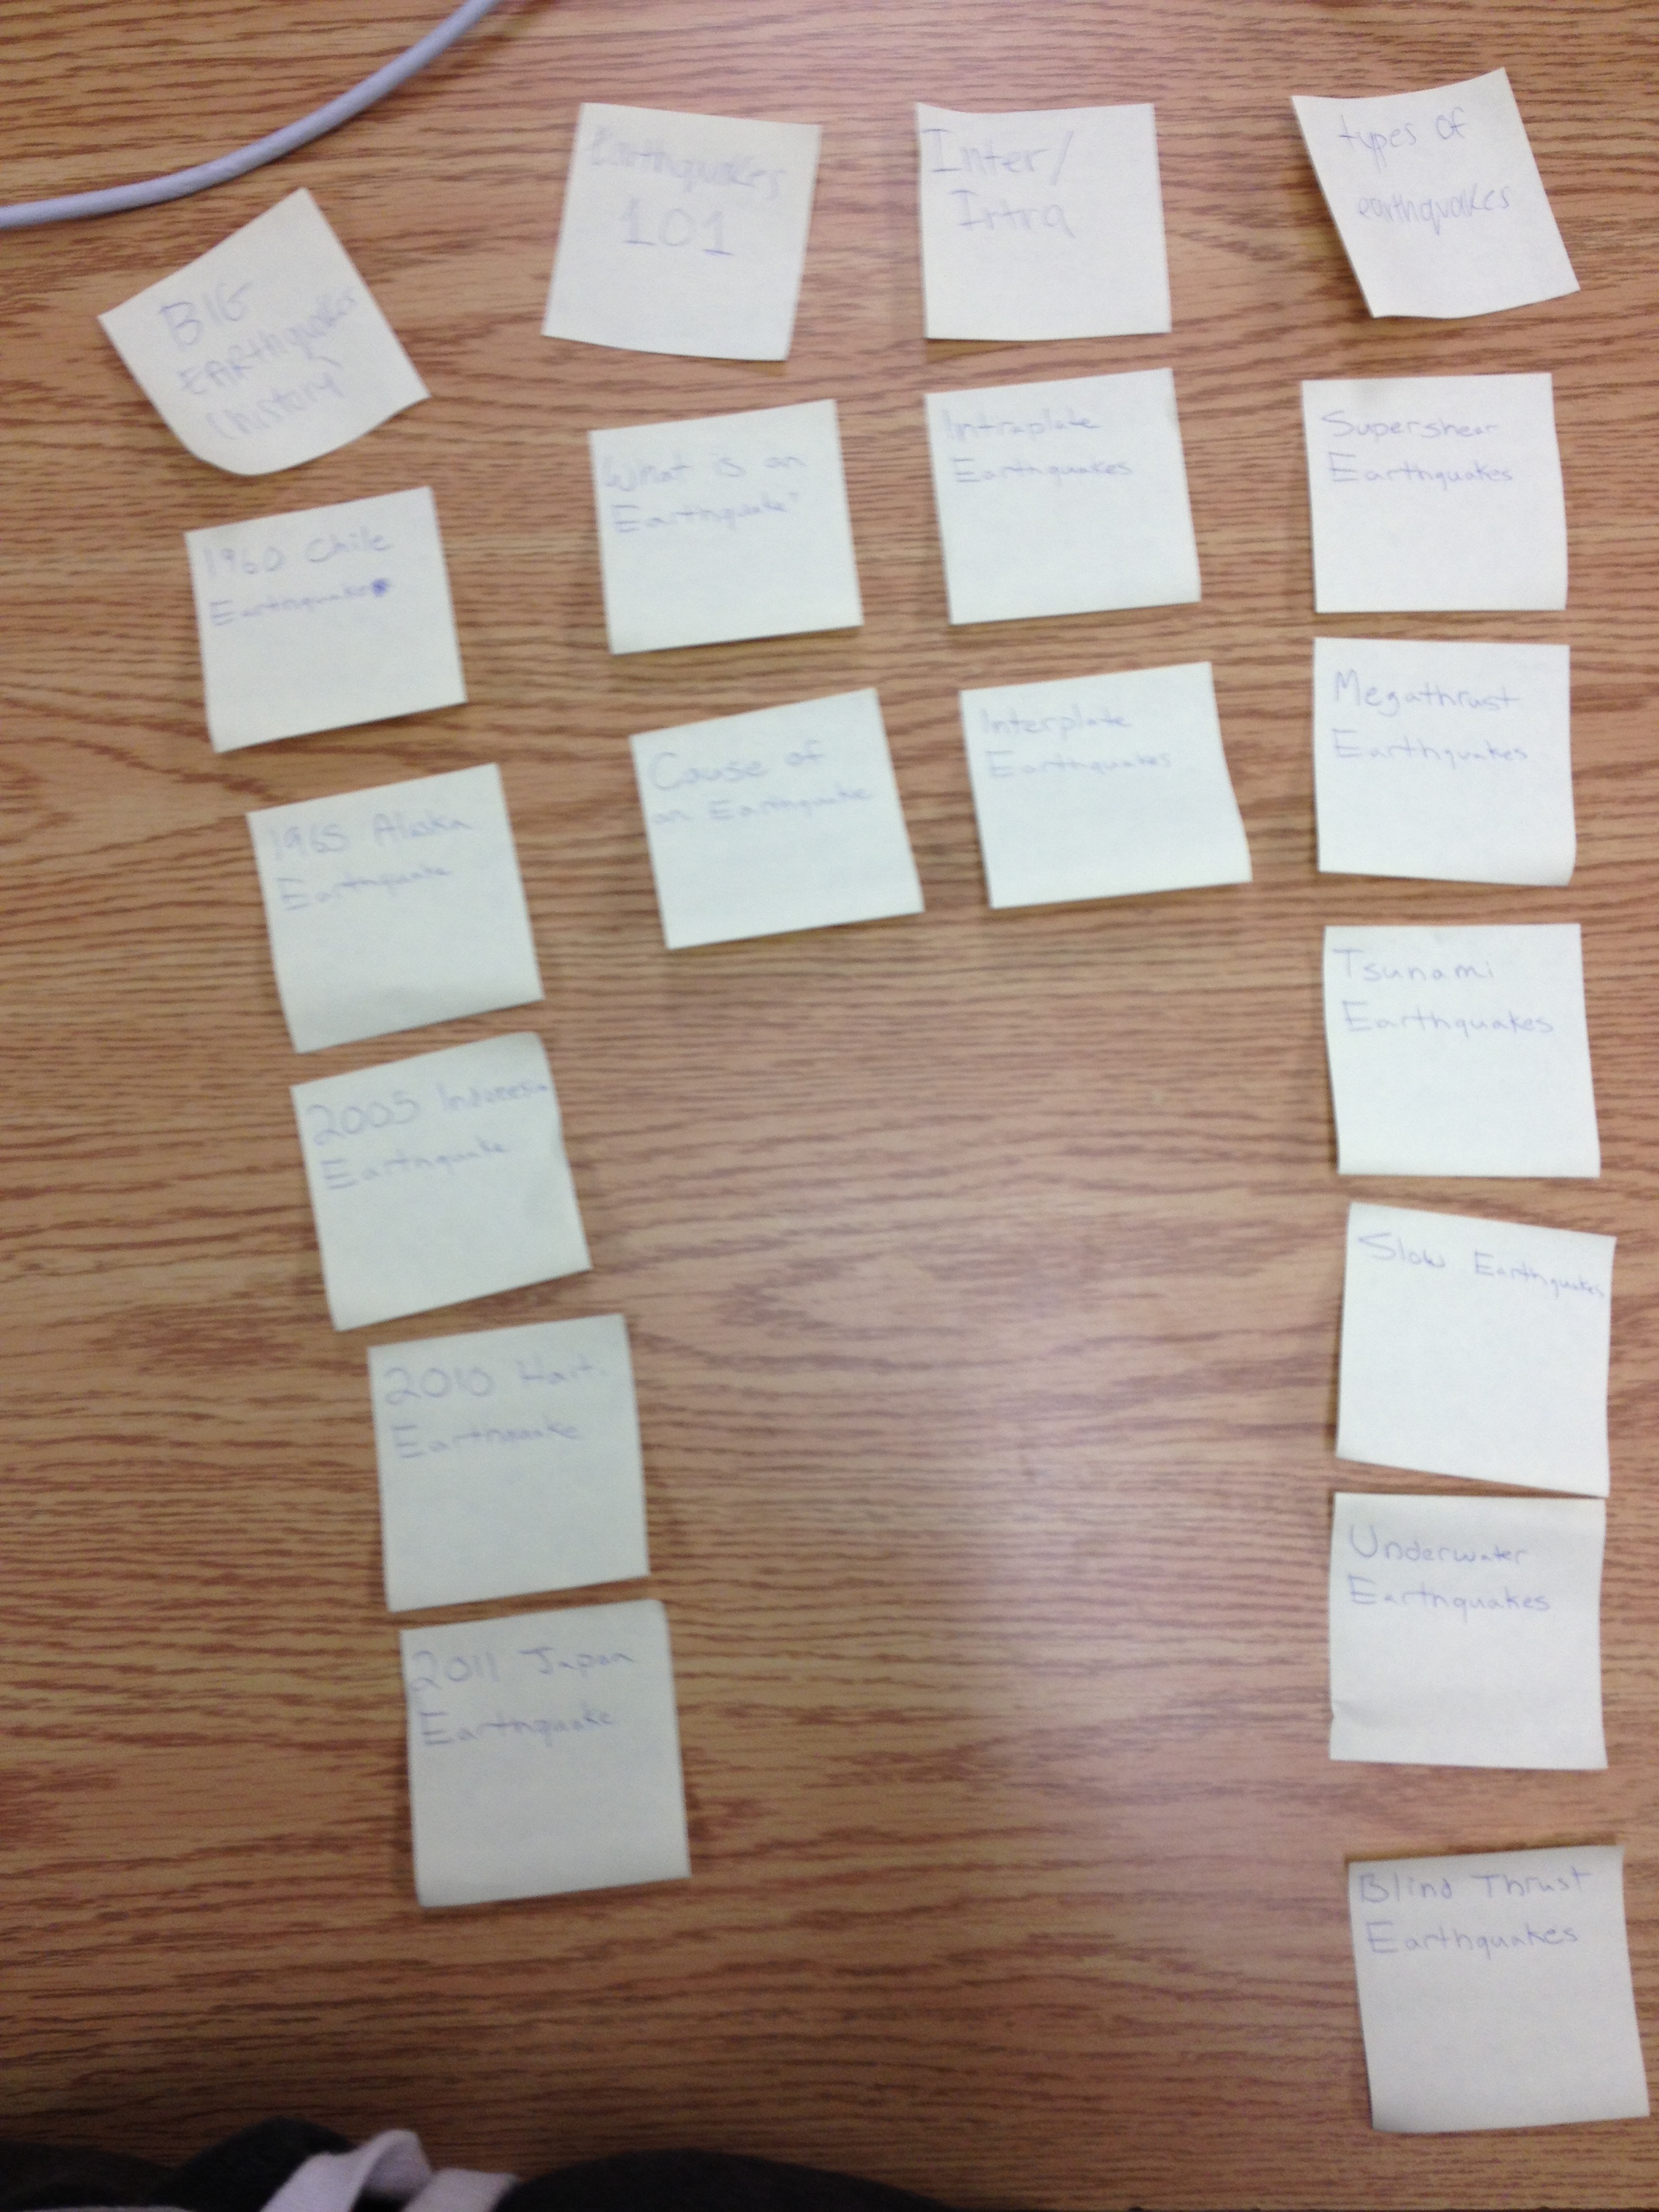 BIG
EARthquakes
(history)
1960 Chile
Earthquake
1965 Alaska
Earthquake
2005 Indonesia
Earthquake
2010 Haiti
Earthquake
2011 Japan
Earthquake
Earthquakes
101
What is an
Earthquake"
Cause of
an Earthquake
Inter/
Intra
Intraplate
Earthquakes
Interplate
Earthquakes
types of
earthquakes
Supershear
Earthquakes
Megathrust
Earthquakes
Tsunami
Earthquakes
Slow Earthquakes
Underwater
Earthquakes
Blind Thrust
Earthquakes